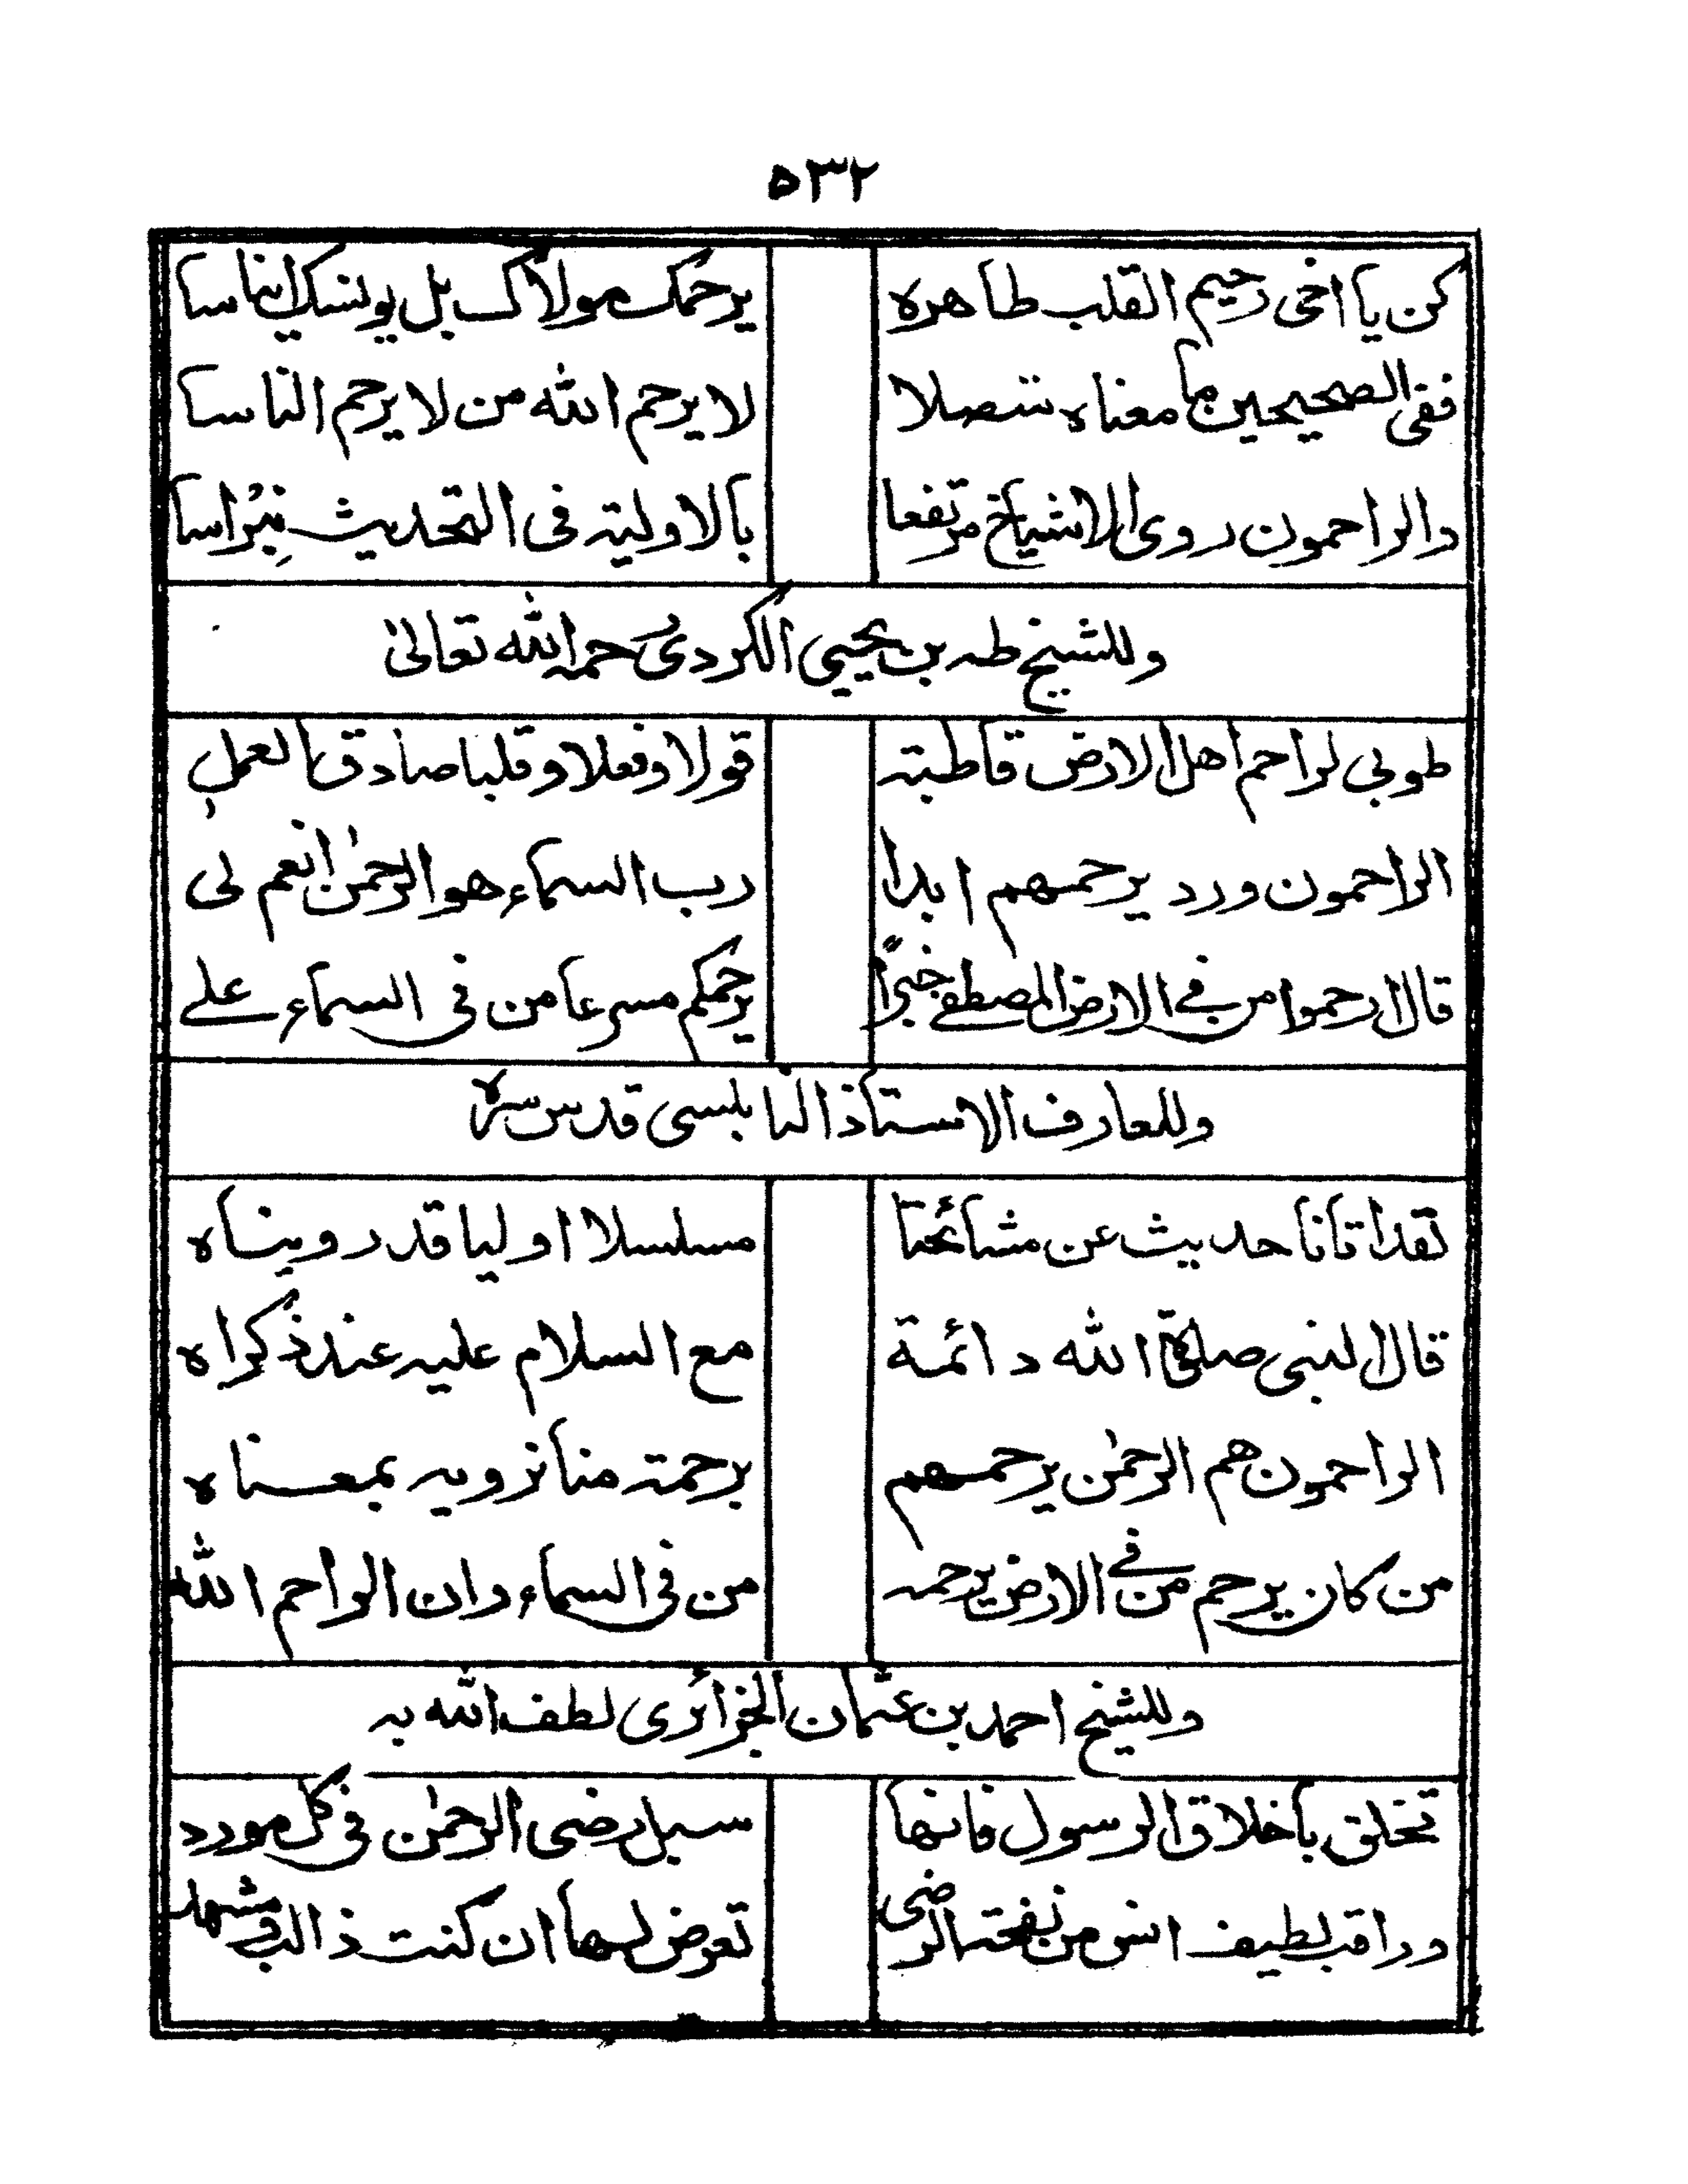 ٥٣٢
كن يا اخى رحيم القلب طاهره يرحمك مولاك بل يونسك ايناسا
ففى الصحيحين جا معناه متصلا لا يرحم الله من لا يرحم الناسا
والراحمون روى الاشياخ مرتفعا بالاوليته فى التحديث نِبْراسا
وللشيخ طه بن يحيى الكردى رحمه الله تعالى
طوبى لراحم اهل الارض قاطبته قولا وفعلا وقلبا صادق العمل
الراحمون ورد يرحمهم ابدا رب السماء هو الرحمن انعم لى
قال ارحموا من فى الارض المصطفى خبرًا يرحمكم مسرعا من فى السماء على
وللعارف الاستاذ النابلسى قدس سره
لقد اتانا حديث عن مشائخنا مسلسلا اوليا قد رويناه
قال النبى صلاة الله دائمة مع السلام عليه عند ذكراه
الراحمون هم الرحمن يرحمهم برحمته منا نرويه بمعناه
من كان يرحم من فى الارض يرحمه من فى السماء وان الراحم الله
وللشيخ احمد بن عثمان الجزائرى لطف الله به
تخلق باخلاق الرسول فانها سبل رضى الرحمن فى كل مورد
وراقب لطيف انس من نفحته الرضى تعرض لها ان كنت ذا لب فى مشهد